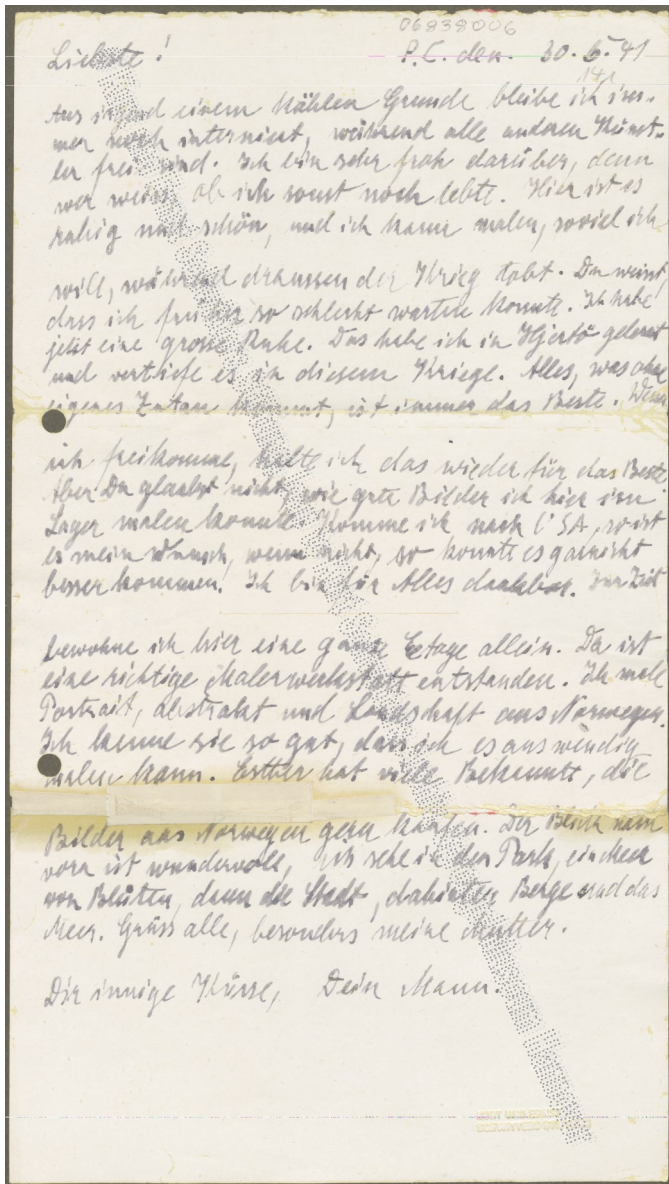 06838006
Liebste! P.C. den. 30.5.41
141
Aus irgend einem Grunde bleibe ich im-
mer noch interniert, während alle anderen Künst-
ler frei sind. Ich bin sehr froh darüber, denn
wer weiss ob ich sonst noch lebte. Hier ist es
ruhig und schön, und ich kann malen, soviel ich
will, während draussen der Krieg tobt. Du weisst,
dass ich früher so schlecht warten konnte. Ich habe
jetzt eine grosse Ruhe. Das habe ich in Hjertö gelernt
und vertiefe es in diesem Kriege. Alles, was ohne
eigenes Zutun kommt, ist immer das Beste. Wenn
ich freikomme, halte ich das wieder für das Beste
Aber Du glaubst nicht, wie gute Bilder ich hier im
Lager malen konnte. Komme ich nach USA, so ist
es mein Wunsch, wenn nicht, so konnte es garnicht
besser kommen. Ich bin für Alles dankbar. Zur Zeit
bewohne ich hier eine ganze Etage allein. Da ist
eine richtige Malerwerkstatt entstanden. Ich male
Portrait, abstrakt und Landschaft aus Norwegen.
Ich kenne sie so gut, dass ich es auswendig
malen kann. Esther hat viele Bekannte, die
Bilder aus Norwegen gern kaufen. Der Blick nach
vorn ist wundervoll, ich sehe in den Park, ein Meer
von Blüten, dann die Stadt, dahinter Berge und das
Meer. Grüss alle, besonders meine Mutter.
Dir innige Küsse, Dein Mann.